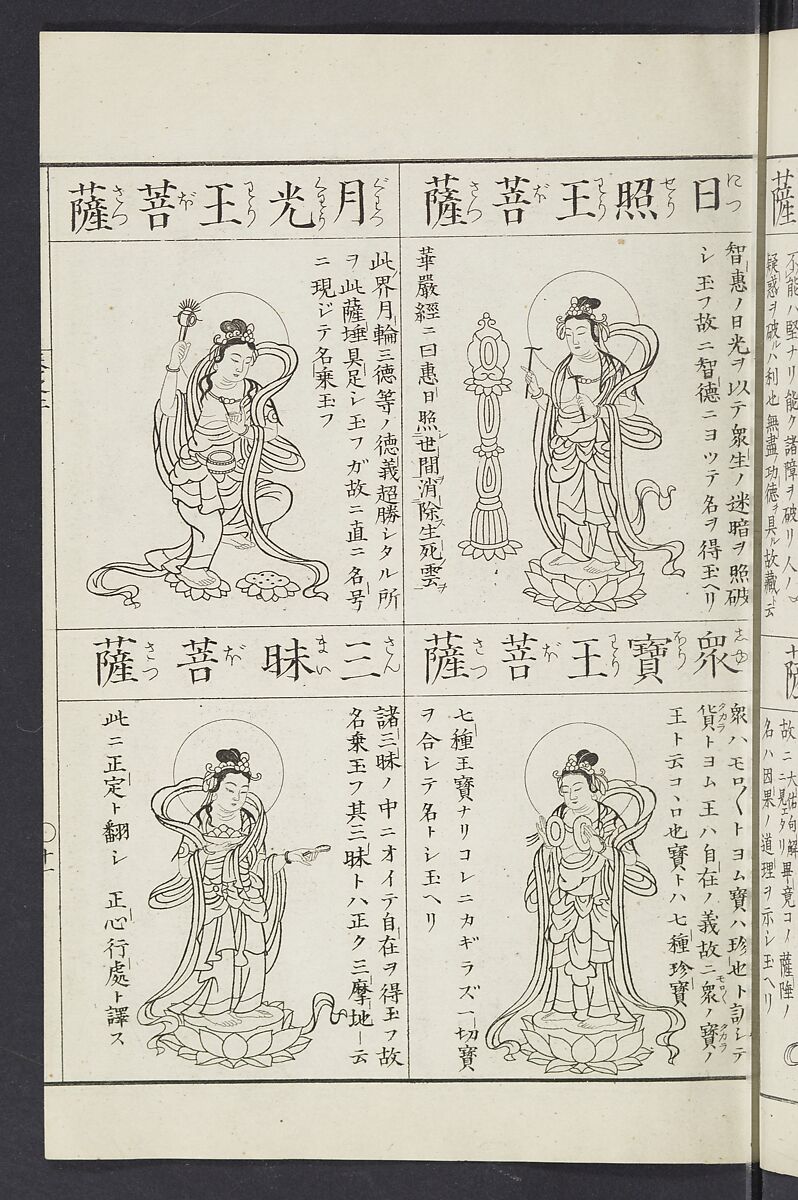 日照王菩薩
につせうわうぼさつ
智惠ノ日光ヲ以テ衆生ノ迷暗ヲ照破
シ玉フ故ニ智德ニヨツテ名ヲ得玉ヘリ
華嚴經ニ曰惠日照世間消除生死雲
月光王菩薩
ぐわつくわうわうぼさつ
此界月輪三德等ノ德義超勝シタル所
ヲ此薩埵具足シ玉フガ故ニ直ニ名号
ニ現ジテ名乗玉フ
衆寶王菩薩
しゆほうわうぼさつ
衆ハモロ〱トヨム寶ハ珍也ト訓シテ
貨トヨム王ハ自在ノ義故ニ衆ノ寶ノ
タカラ
モロ〱
タカラ
王ト云コヽロ也寶トハ七種珍寶
七種王寶ナリコレニカギラズ一切寶
ヲ合シテ名トシ玉ヘリ
三昧菩薩
さんまいぼさつ
諸三昧ノ中ニオイテ自在ヲ得玉フ故
名乗玉フ其三昧トハ正ク三摩地ト云
此ニ正定ト翻シ 正心行處ト譯ス
十一
薩
不能ハ堅ナリ能ク諸障ヲ破リ人ノ
疑惑ヲ破ルハ利也無盡ノ功德ヲ具ル故藏ト云
名ハ因果ノ道理ヲ示シ玉ヘリ